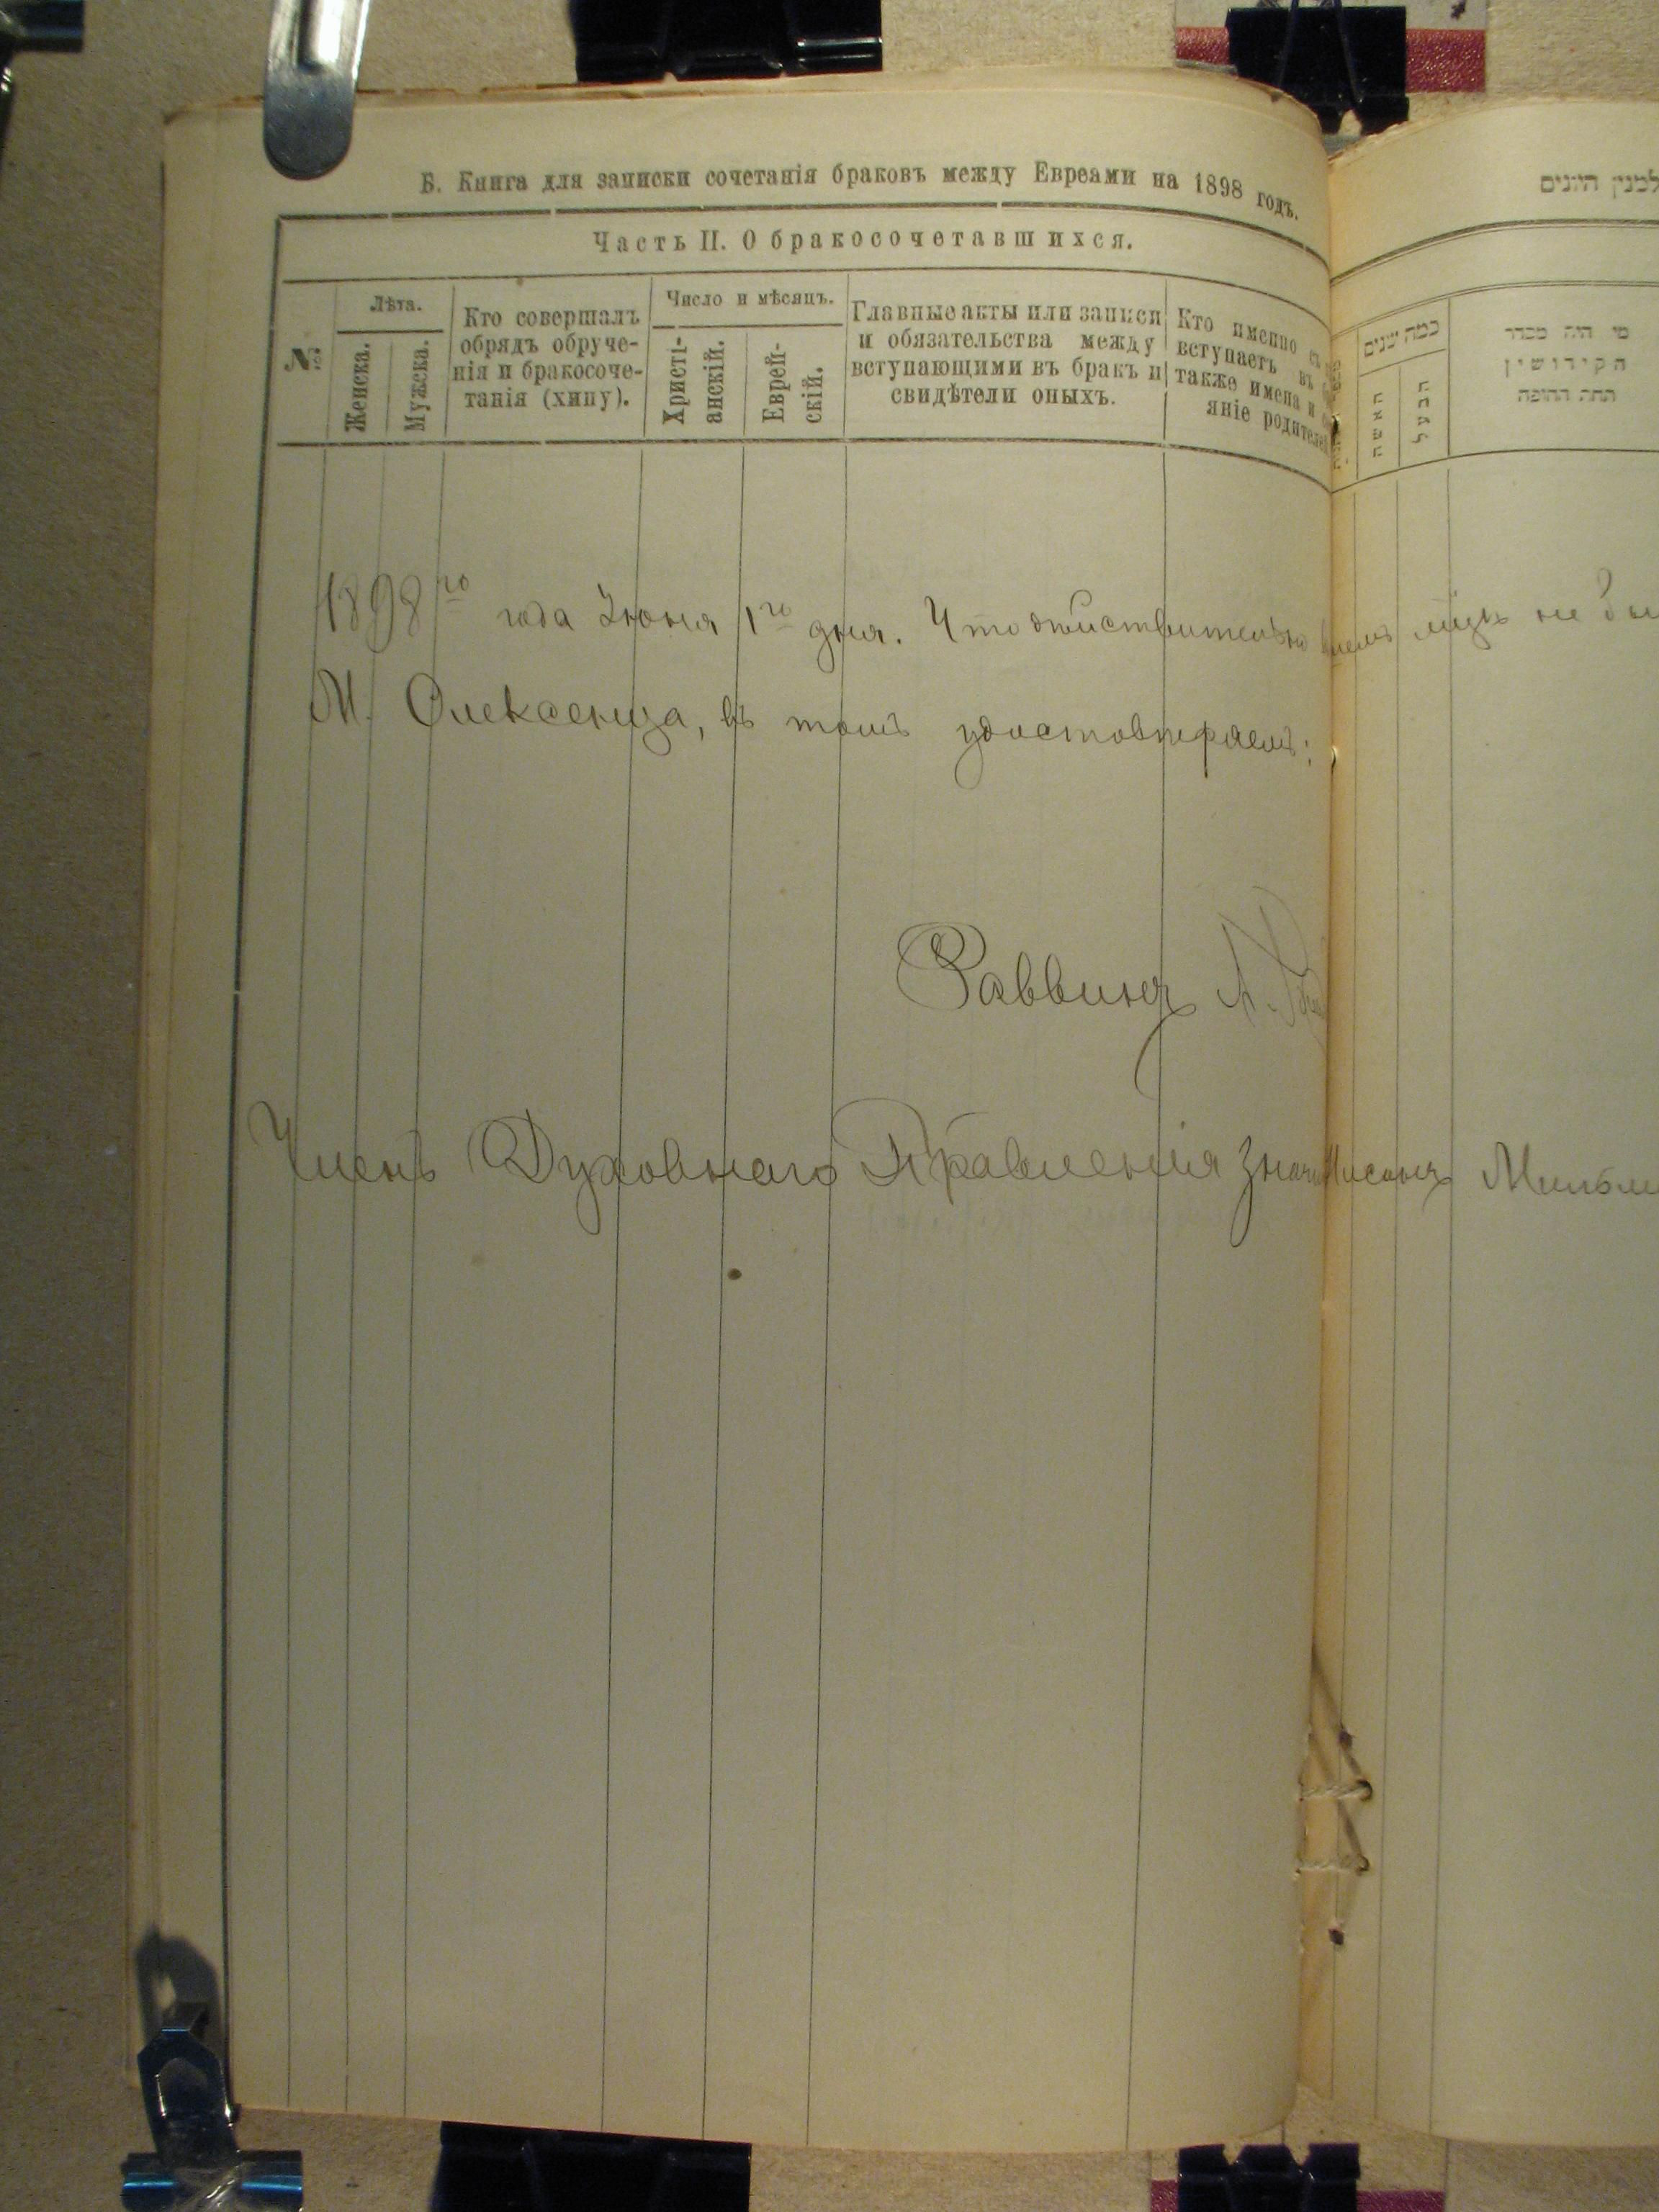 Б. Книга для записки сочетанія браковъ между Евреами на 1898 годъ.
Часть II. О бракосочетавшихся.
№
Лѣта.
Женска.
Мужска.
Кто совершалъ
обрядъ обруче-
нія и бракосоче-
танія (хипу).
Число и мѣсяцъ.
Христі-
анскій.
Еврей-
скій.
Главные акты или записи
и обязательства между
вступающими въ бракъ и
свидѣтели оныхъ.
Кто именно съ
вступаетъ въ
также имена и
яніе родителей
למנין היונים
כמה שנים
האשה
הבעל
מי היה מסדר
הקידושין
תחת החופה
1898 го года Июня 1 го дня. Что действительно лицъ не
М. Олексенца, въ томъ удостовѣряемъ:
Раввинъ А.
Членъ Духовнаго Правленія Нисонъ